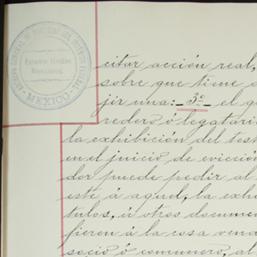 Estados Unidos
Mexicanos.
MEXICO
citar acción real,
sobre que tiene
jir una: 3º el q
redero ó legatari
la exhibición del test
en el juicio de evicció
dor puede pedir al
este á aquel, la exhi
tulos, ú otros documen
fieren á la cosa vend
socio ó comunero, al